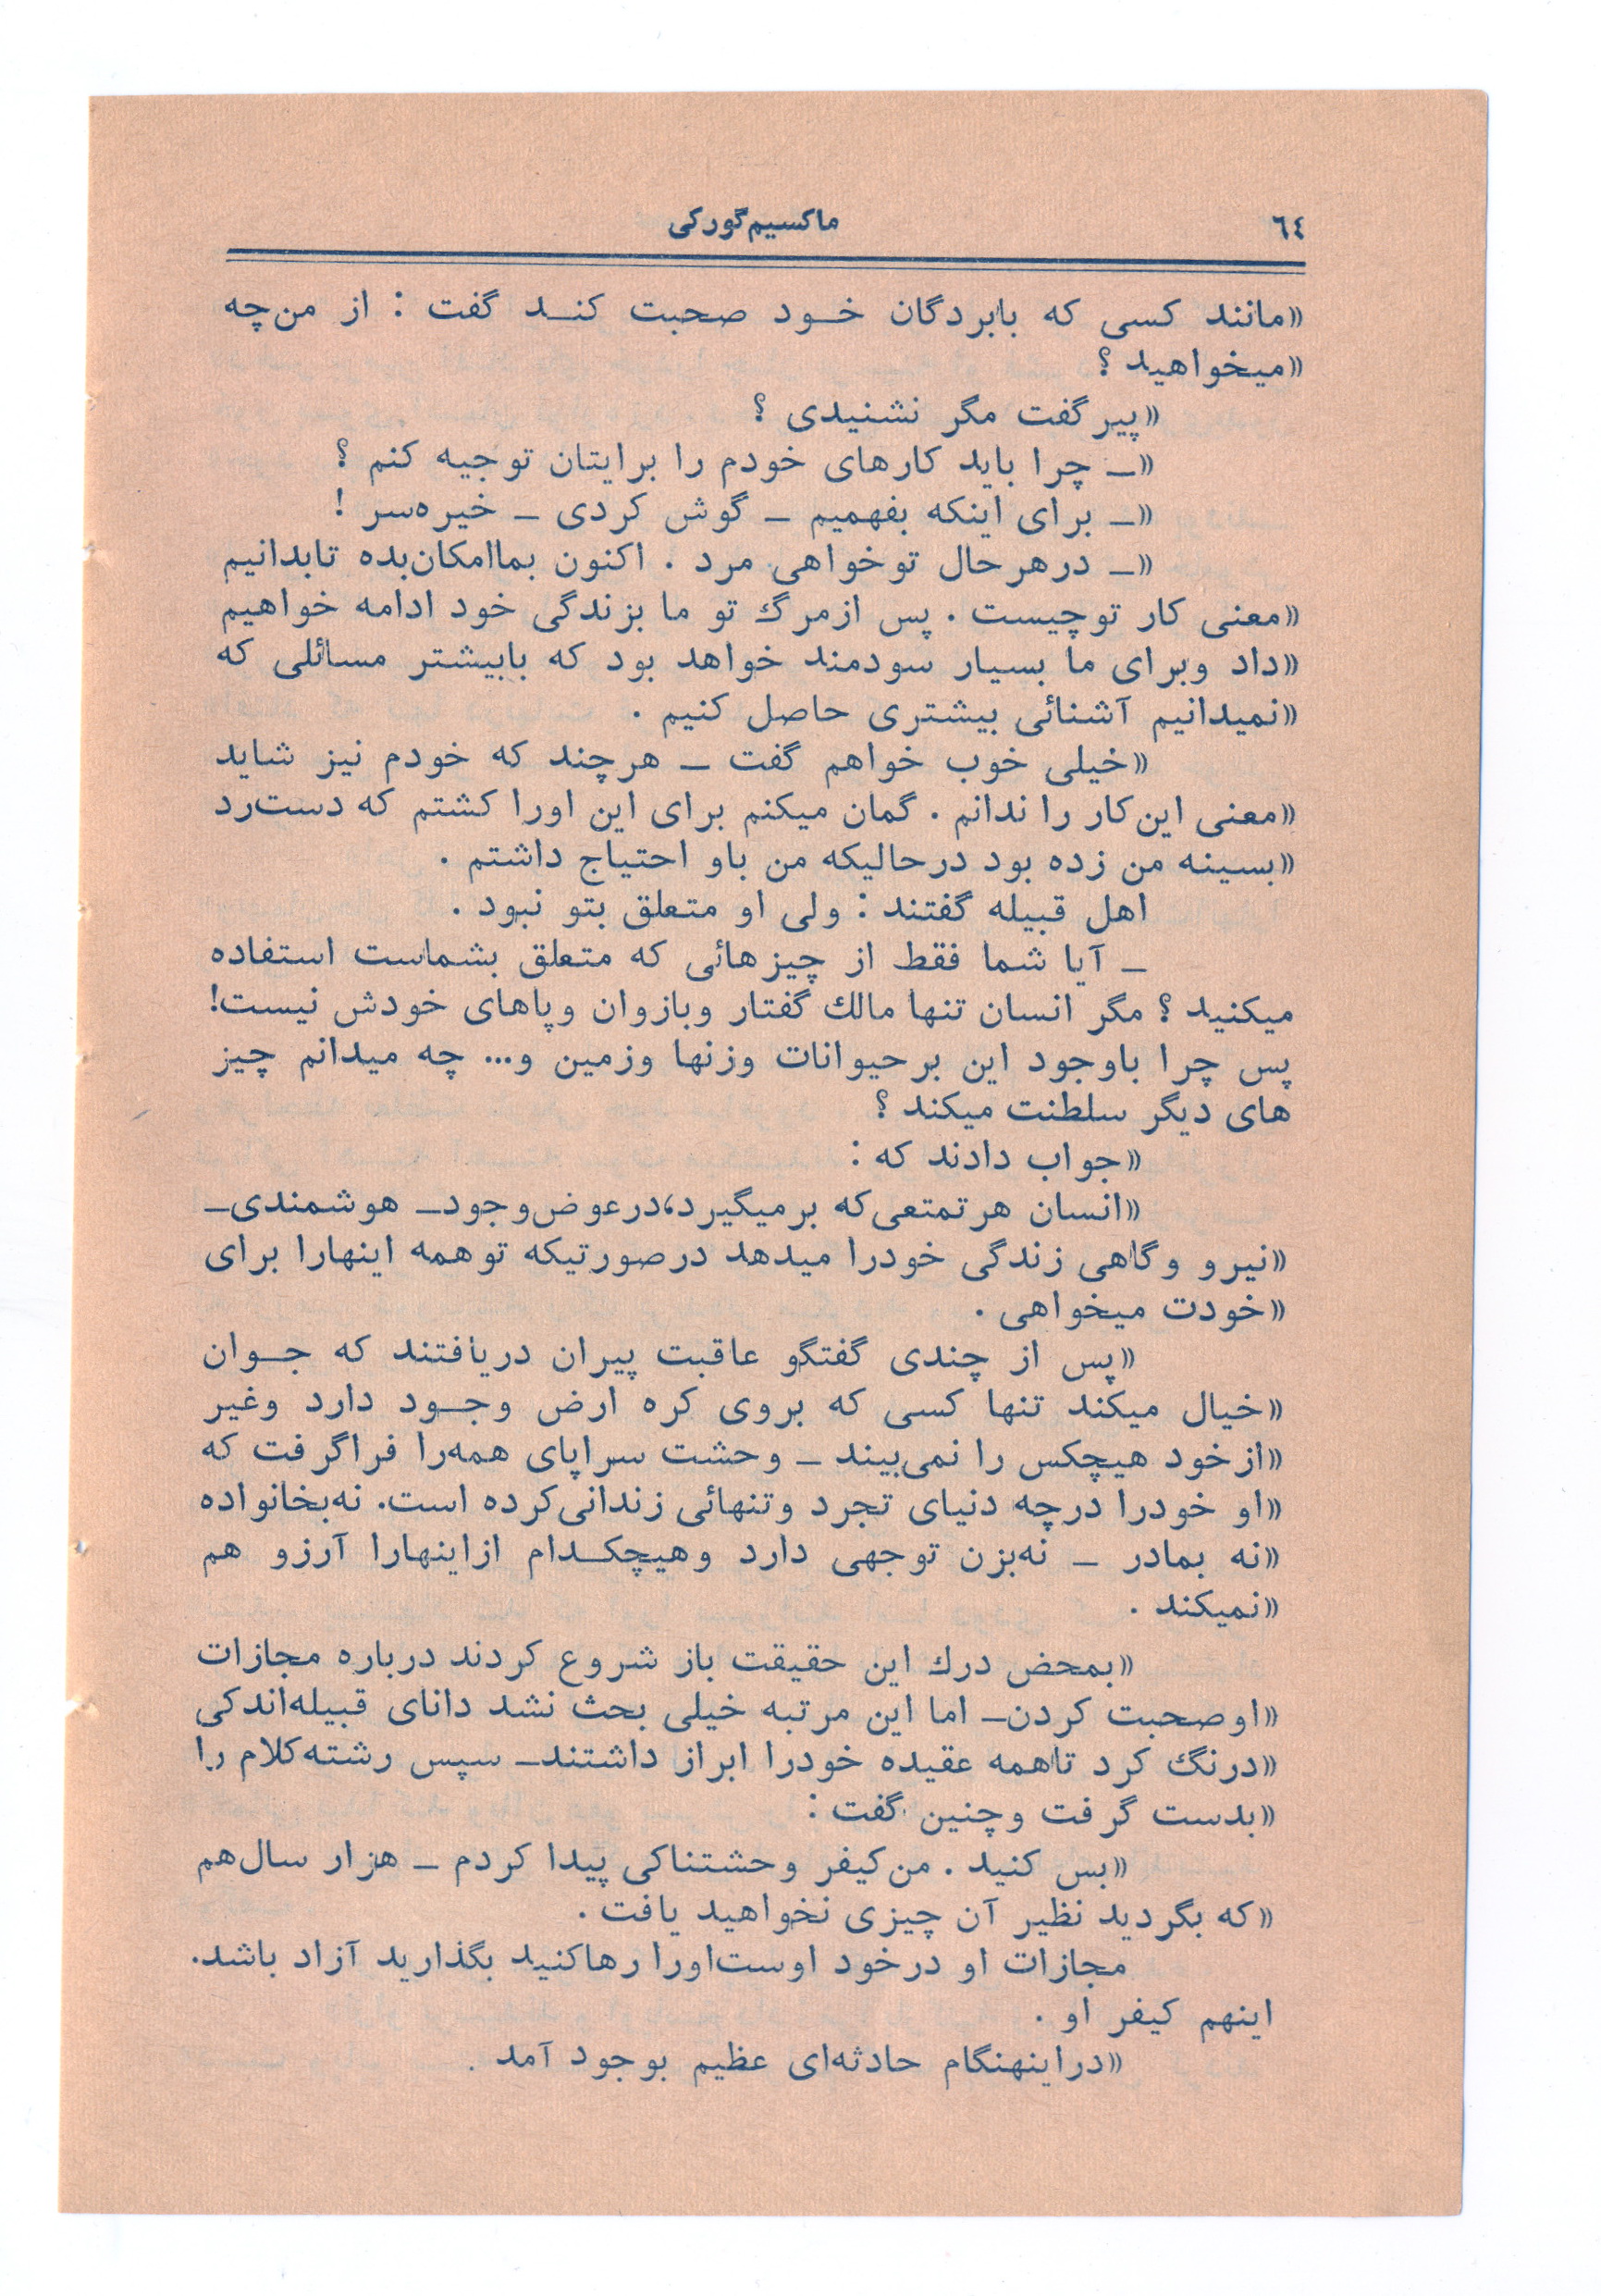 ٦٤
ماکسیم گورکی
«مانند کسی که بابردگان خود صحبت کند گفت : از من‌چه
«میخواهید ؟
«پیر گفت مگر نشنیدی ؟
«ـ چرا باید کارهای خودم را برایتان توجیه کنم ؟
«ـ برای اینکه بفهمیم ـ گوش کردی ـ خیره‌سر !
«ـ درهرحال توخواهی مرد . اکنون بماامکان‌بده تابدانیم
«معنی کار توچیست . پس ازمرگ تو ما بزندگی خود ادامه خواهیم
«داد وبرای ما بسیار سودمند خواهد بود که بابیشتر مسائلی که
«نمیدانیم آشنائی بیشتری حاصل کنیم .
«خیلی خوب خواهم گفت ـ هرچند که خودم نیز شاید
«معنی این‌کار را ندانم . گمان میکنم برای این اورا کشتم که دست‌رد
«بسینه من زده بود درحالیکه من باو احتیاج داشتم .
اهل قبیله گفتند : ولی او متعلق بتو نبود .
ـ آیا شما فقط از چیزهائی که متعلق بشماست استفاده
میکنید ؟ مگر انسان تنها مالك گفتار وبازوان وپاهای خودش نیست!
پس چرا باوجود این برحیوانات وزنها وزمین و... چه میدانم چیز
های دیگر سلطنت میکند ؟
«جواب دادند که :
«انسان هرتمتعی‌که برمیگیرد،درعوض‌وجودـ هوشمندی‌ـ
«نیرو وگاهی زندگی خودرا میدهد درصورتیکه توهمه اینهارا برای
«خودت میخواهی .
«پس از چندی گفتگو عاقبت پیران دریافتند که جوان
«خیال میکند تنها کسی که بروی کره ارض وجود دارد وغیر
«ازخود هیچکس را نمی‌بیند ـ وحشت سراپای همه‌را فراگرفت که
«او خودرا درچه دنیای تجرد وتنهائی زندانی‌کرده است. نه‌بخانواده
«نه بمادر ـ نه‌بزن توجهی دارد وهیچکدام ازاینهارا آرزو هم
«نمیکند .
«بمحض درك این حقیقت باز شروع کردند درباره مجازات
«اوصحبت کردن‌ـ اما این مرتبه خیلی بحث نشد دانای قبیله‌اندکی
«درنگ کرد تاهمه عقیده خودرا ابراز داشتندـ سپس رشته‌کلام را
«بدست گرفت وچنین گفت :
«بس کنید . من‌کیفر وحشتناکی پیدا کردم ـ هزار سال‌هم
«که بگردید نظیر آن چیزی نخواهید یافت .
مجازات او درخود اوست‌اورا رهاکنید بگذارید آزاد باشد.
اینهم کیفر او .
«دراینهنگام حادثه‌ای عظیم بوجود آمد .